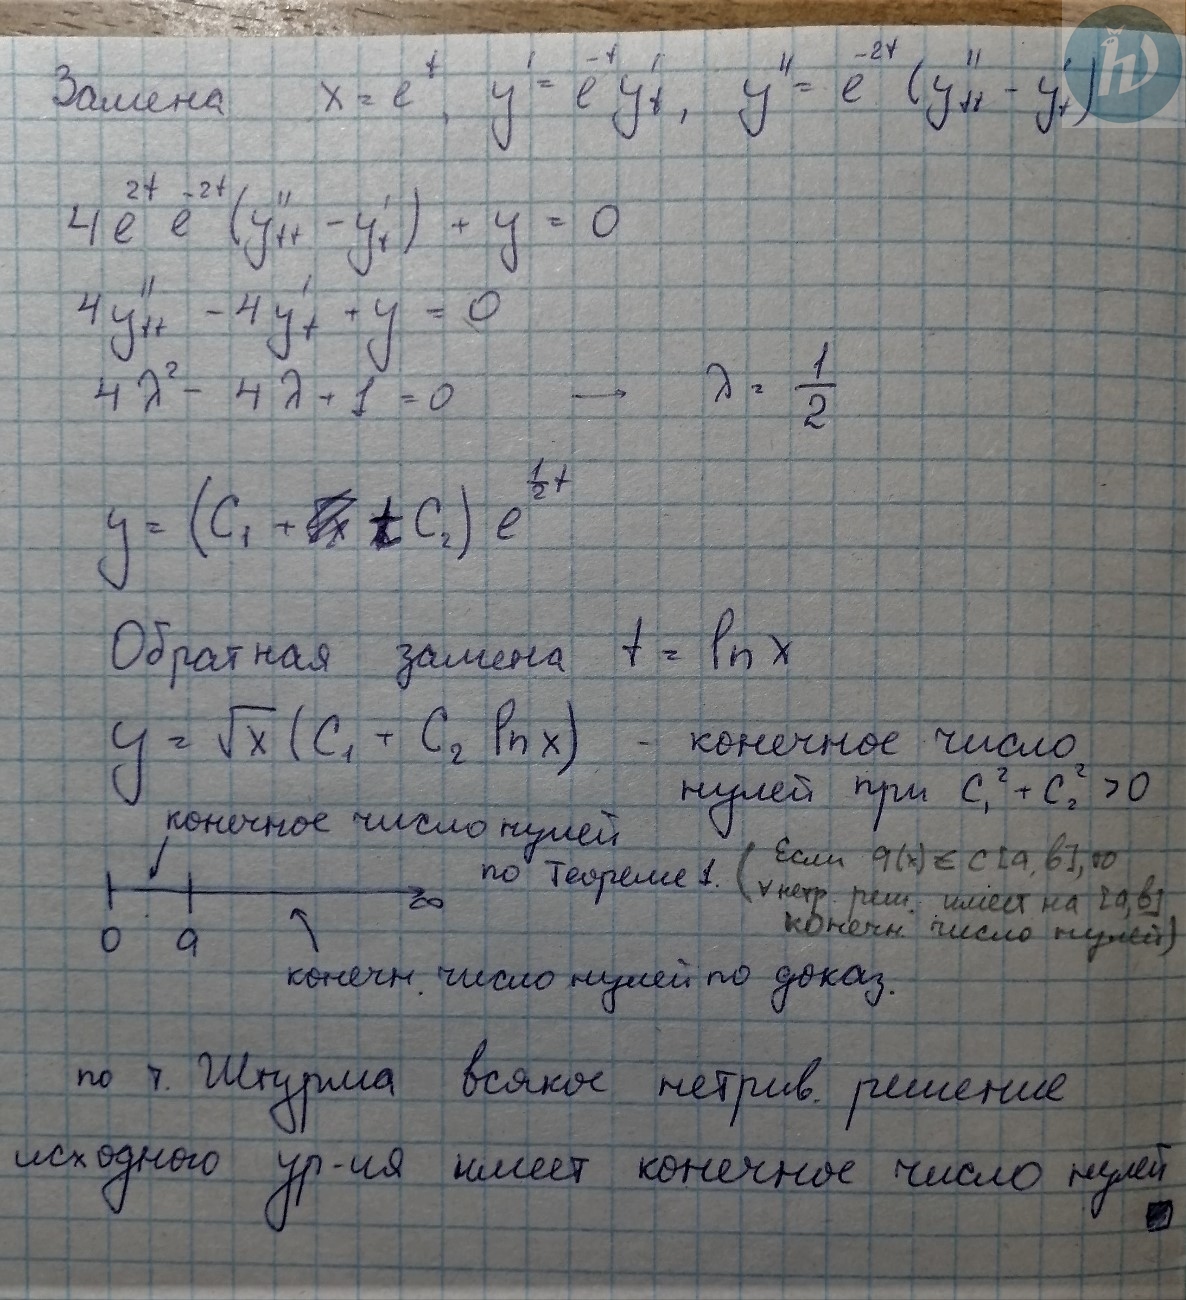 Замена x = e^t, y' = e^{-t} y'_t, y'' = e^{-2t} (y''_{tt} - y'_t)
4 e^{2t} e^{-2t} (y''_{tt} - y'_t) + y = 0
4y''_{tt} - 4y'_t + y = 0
4λ² - 4λ + 1 = 0 → λ = 1/2
y = (C₁ + t C₂) e^{1/2 t}
Обратная замена t = ln x
y = √x (C₁ + C₂ ln x) - конечное число
нулей при C₁² + C₂² > 0
конечное число нулей
по Теореме 1. (Если q(x) ∈ C[a, b], то
∀ нетр. реш. имеет на [a, b]
конечн. число нулей)
0 a ∞
конечн. число нулей по доказ.
по т. Штурма всякое нетрив. решение
исходного ур-ия имеет конечное число нулей